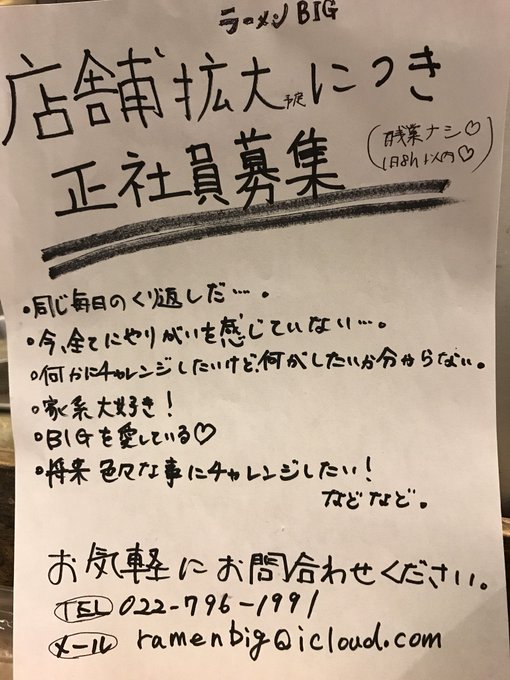 ラーメン BIG
店舗拡大予定につき
正社員募集
(残業ナシ♡
1日8h以内♡)
・同じ毎日のくり返しだ…。
・今、全てにやりがいを感じていない…。
・何かにチャレンジしたいけど、何がしたいか分からない。
・家系大好き！
・BIGを愛している♡
・将来色々な事にチャレンジしたい！
などなど。
お気軽にお問合わせください。
TEL 022-796-1991
メール ramenbig@icloud.com